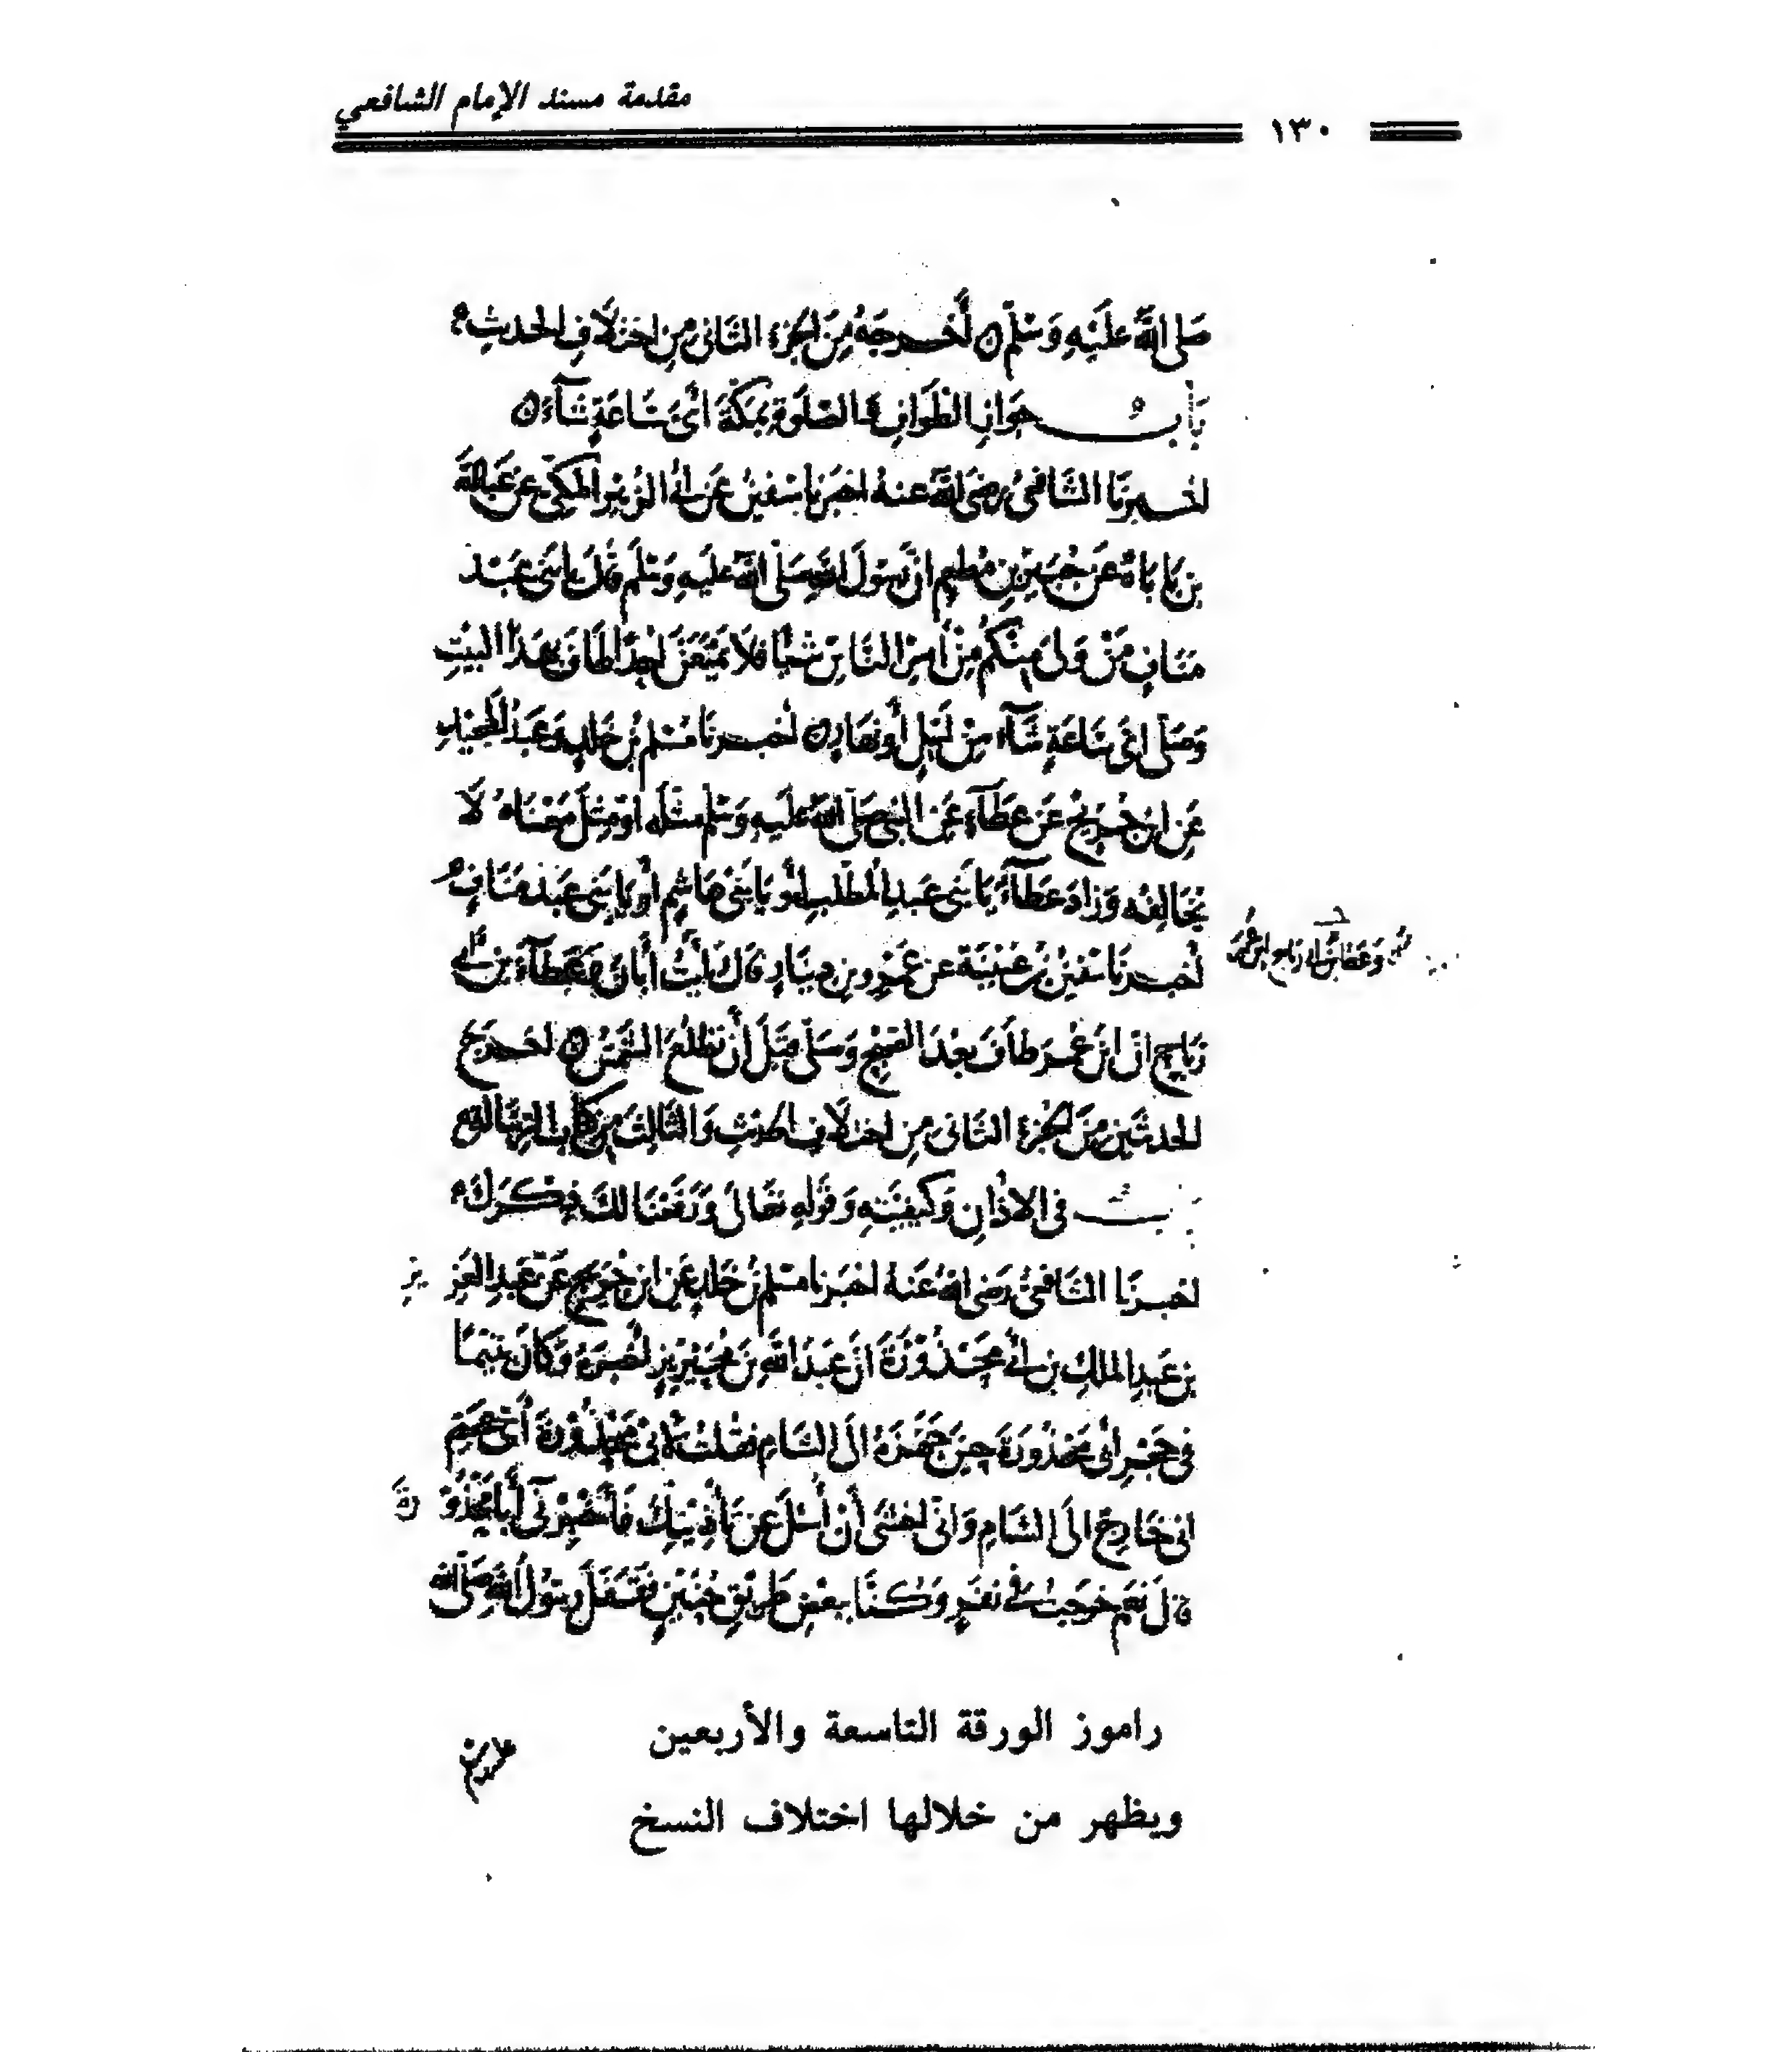 مقدمة مسند الإمام الشافعي
١٣٠
صَلى اللهُ عَلَيْهِ وَسَلَّم أَخرجَهُ مِنَ الجزءِ الثَّانى مِن اختلَافِ الحديثِ
بَابُ جَوَازِ الطَّوَافِ وَالصَّلَوةِ بِمَكَّةَ أَىَّ سَاعَةٍ شَآءَ
اخبرنَا الشَّافِعىُّ رَضىَ اللهُ عنهُ اخبَرَنا سُفْينُ عَن أبى الزُبَيْرِ المَكّىِّ عَن عَبدِ اللهِ
بنِ بَابَاهُ عَن جُبَيْرِ بنِ مُطعِمٍ انَّ رَسُولَ اللهِ صَلَّى اللهُ عَلَيهِ وَسَلَّمَ قَالَ يا بَنى عَبْدِ
مَنَافٍ مَنْ وَلىَ مِنكُم مِنْ أَمرِ النَّاسِ شَيئًا فَلَا يَمْنَعَنَّ احَدًا طَافَ بِهَذَا البَيْتِ
وَصَلّى اىَّ سَاعَةٍ شَآءَ مِنْ لَيلٍ أَو نَهَارٍ أخبرنَا مُسْلمُ بنُ خَالدٍ وَعَبدُ المَجيدِ
عَنِ ابنِ جُرَيجٍ عَن عَطَآءٍ عَنِ النَّبى صَلّى اللهُ عَلَيهِ وَسَلَّم مثلَه اوْ مِثلَ مَعْنَاهُ لَا
يُخَالِفُه وَزادَ عَطَآءٌ يَا بَنى عَبدِ المُطّلبِ أَو يَا بَنى هَاشِمٍ أَو يَا بَنى عَبدِ مَنَافٍ
أخبرنَا سُفينُ بنُ عُيَيْنَةَ عن عَمْرِو بنِ دِينَارٍ قَالَ رَأَيتُ أَنَا وَعَطَآءُ بنُ أَبى
رَبَاحٍ انَّ ابنَ عُمرَ طَافَ بَعْدَ الصُّبْحِ وَصَلَّى قَبْلَ أَن تَطْلُعَ الشَّمْسُ اخرَجَ
الحديثَيْن مِنَ الجُزءِ الثَّانى مِنِ اختِلَافِ الحَديثِ وَالثَّالِثَ مِن كِتَابِ الرِّسَالَةِ
بابُ فى الاذَانِ وَكَيفِيَّتِهِ وَقَولِهِ تَعَالىَ وَرَفَعْنَا لَكَ ذِكْرَكَ
اخبرنَا الشَّافِعىُّ رَضىَ اللهُ عَنهُ اخبَرَنا مُسْلمُ بنُ خَالدٍ عَنِ ابنِ جُرَيجٍ عَن عَبدِ العَزِيزِ
بنِ عَبدِ الملكِ بنِ أَبى مَحْذُوْرَةَ انَّ عَبدَ اللهِ بنَ مُحَيْرِيزٍ اخبَرَهُ وَكَانَ يَتيمًا
فى حَجْرِ أبى مَحْذُورَةَ حِينَ جَهَّزَهُ الَى الشَّامِ فقُلتُ لأَبى مَحْذُوْرَةَ أَىْ عَمِّ
انى خَارِجٌ الىَ الشَّامِ وَانّى أخشَى أَن أُسْئَلَ عَن تَأذِينِكَ فَأَخْبِرْنى أَبَا مَحْذُوْرَةَ
قالَ نَعَم خَرَجتُ فى نَفَرٍ وَكُنَّا بِبَعْضِ طَرِيْقِ حُنَيْنٍ فَقَفَلَ رَسُولُ اللهِ صَلَّى الله
راموز الورقة التاسعة والأربعين
ويظهر من خلالها اختلاف النسخ